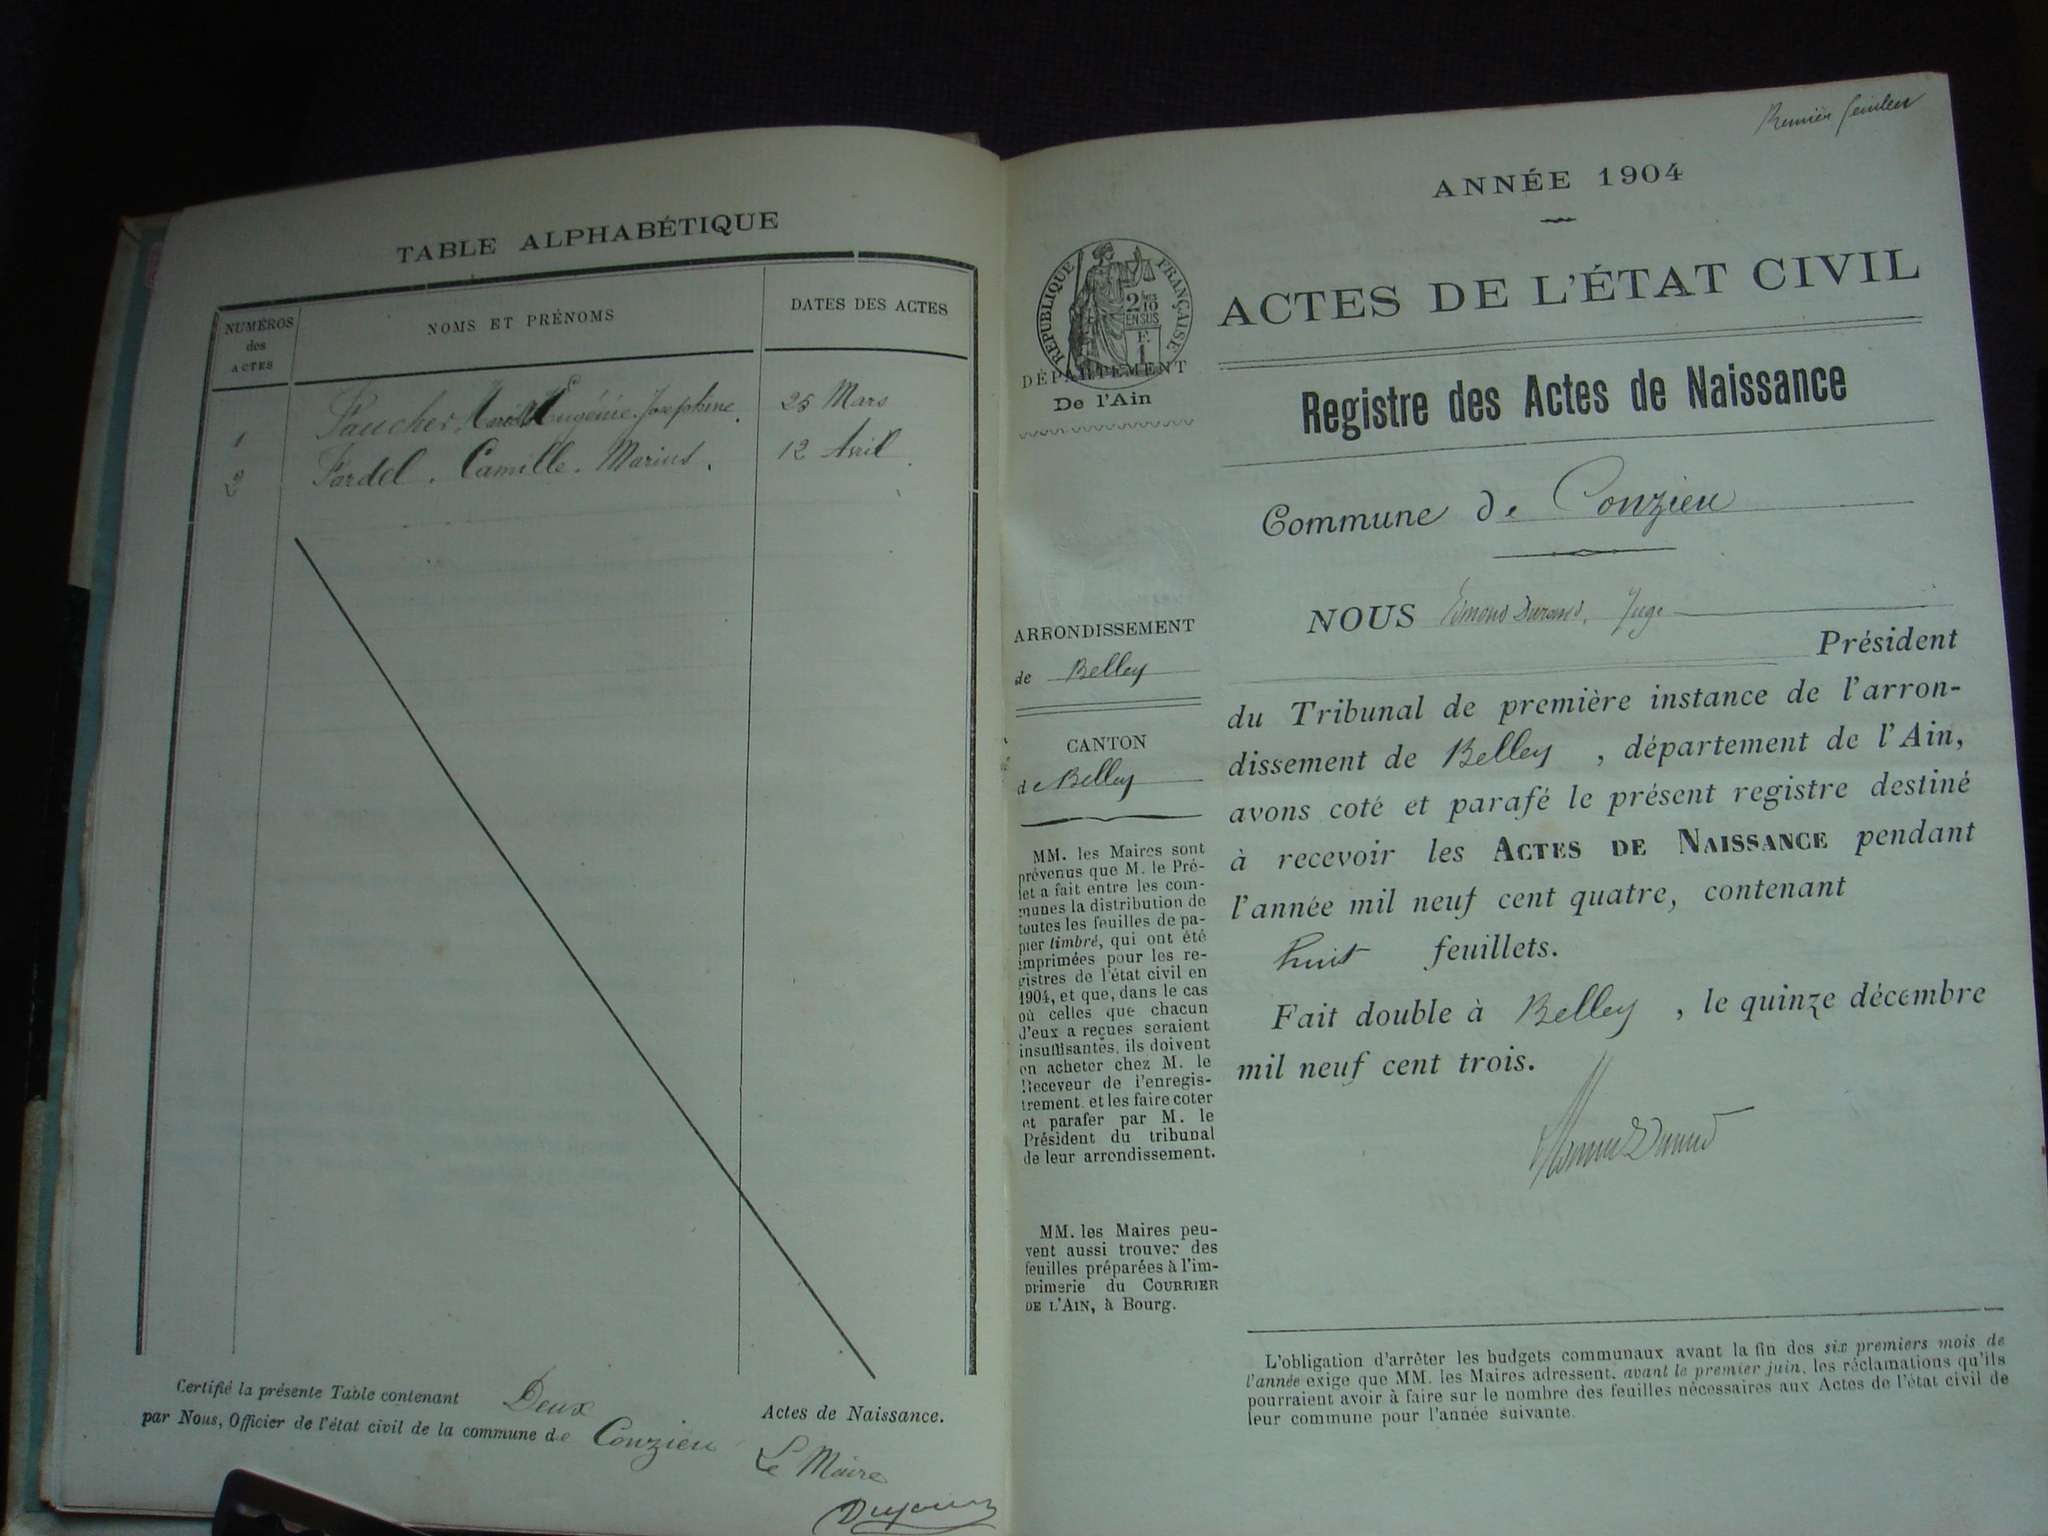 TABLE ALPHABÉTIQUE
NUMÉROS
des
ACTES
NOMS ET PRÉNOMS
DATES DES ACTES
1 Faucher Eugénie Joséphine. 25 Mars
2 Fardel. Camille. Marius. 12 Avril
Certifié la présente Table contenant Deux Actes de Naissance.
par Nous, Officier de l'état civil de la commune de Conzieu
Le Maire
Premier feuillet
ANNÉE 1904
RÉPUBLIQUE FRANÇAISE
2 /10
EN SUS
E
1
DÉPARTEMENT
De l'Ain
ACTES DE L'ÉTAT CIVIL
Registre des Actes de Naissance
Commune de Conzieu
ARRONDISSEMENT
de Belley
CANTON
de Belley
MM. les Maires sont
prévenus que M. le Pré-
fet a fait entre les com-
munes la distribution de
toutes les feuilles de pa-
pier timbré, qui ont été
imprimées pour les re-
gistres de l'état civil en
1904, et que, dans le cas
où celles que chacun
d'eux a reçues seraient
insuffisantes, ils doivent
en acheter chez M. le
Receveur de l'enregis-
trement et les faire coter
et parafer par M. le
Président du tribunal
de leur arrondissement.
MM. les Maires peu-
vent aussi trouver des
feuilles préparées à l'im-
primerie du COURRIER
DE L'AIN, à Bourg.
NOUS Edmond Durand, Juge
Président
du Tribunal de première instance de l'arron-
dissement de Belley, département de l'Ain,
avons coté et parafé le présent registre destiné
à recevoir les ACTES DE NAISSANCE pendant
l'année mil neuf cent quatre, contenant
huit feuillets.
Fait double à Belley, le quinze décembre
mil neuf cent trois.
L'obligation d'arrêter les budgets communaux avant la fin des six premiers mois de
l'année exige que MM. les Maires adressent, avant le premier juin, les réclamations qu'ils
pourraient avoir à faire sur le nombre des feuilles nécessaires aux Actes de l'état civil de
leur commune pour l'année suivante.